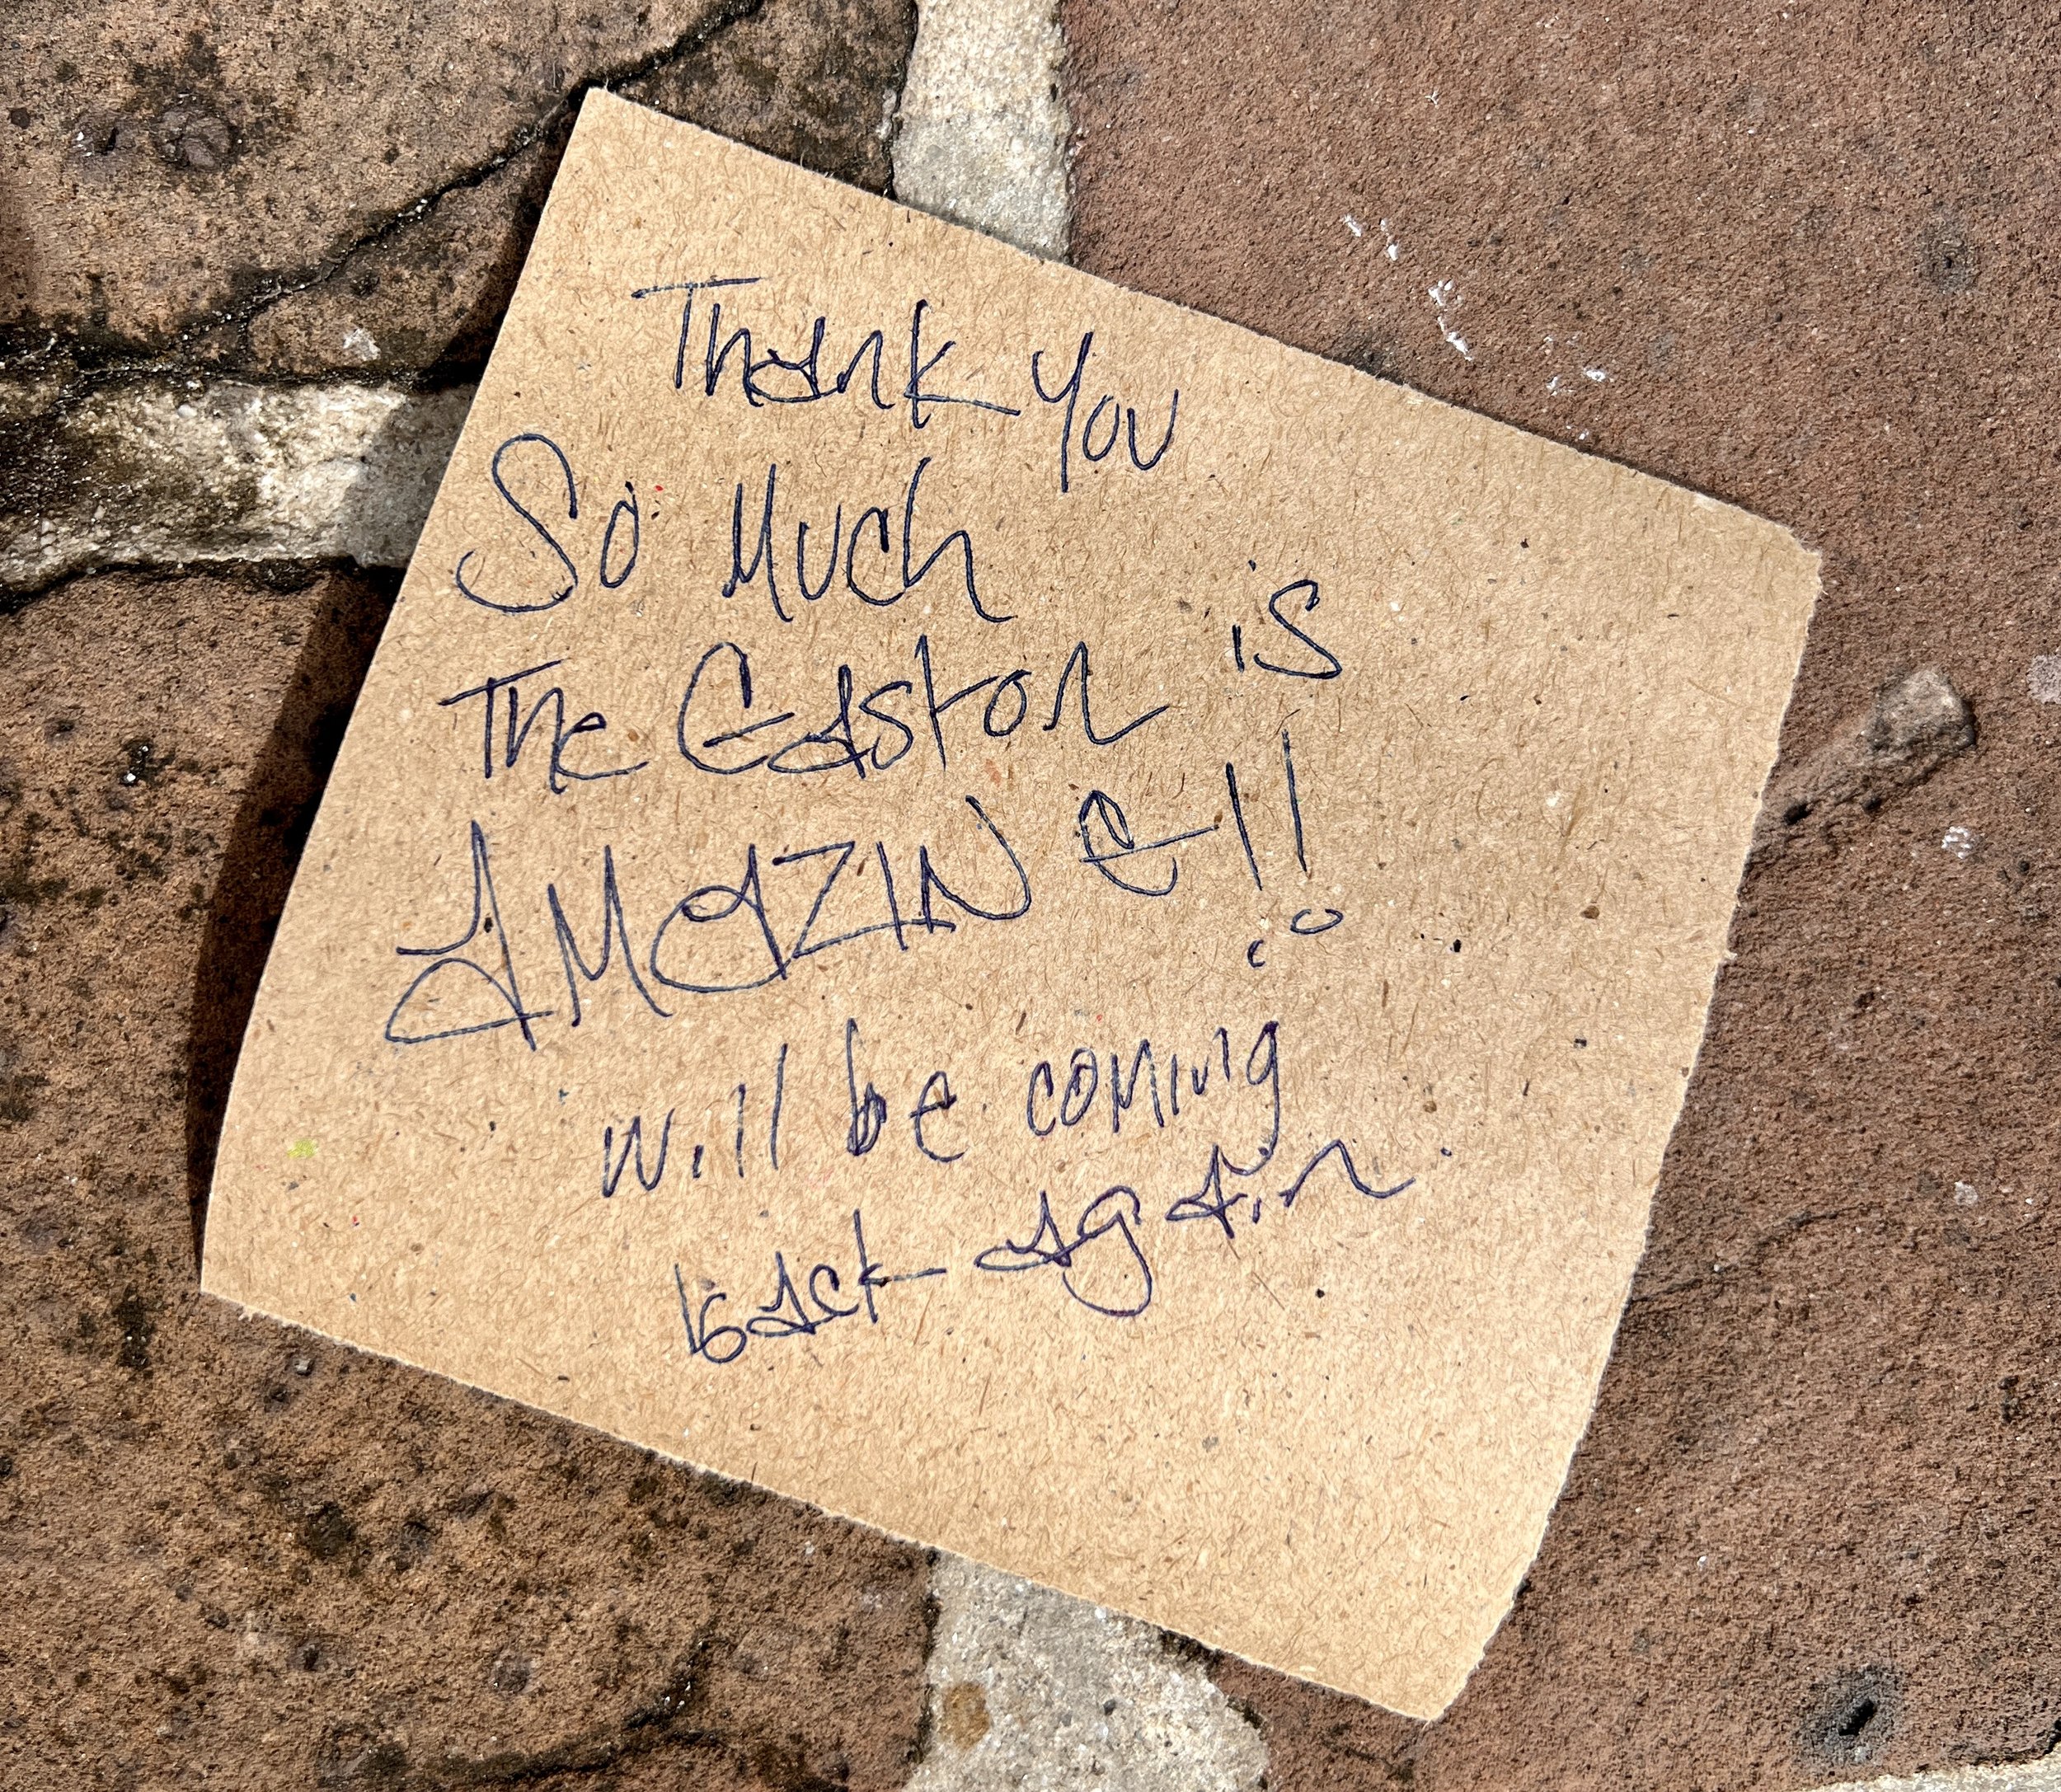 Thank You
So Much
The Gaston is
AMAZING!!
will be coming
back again